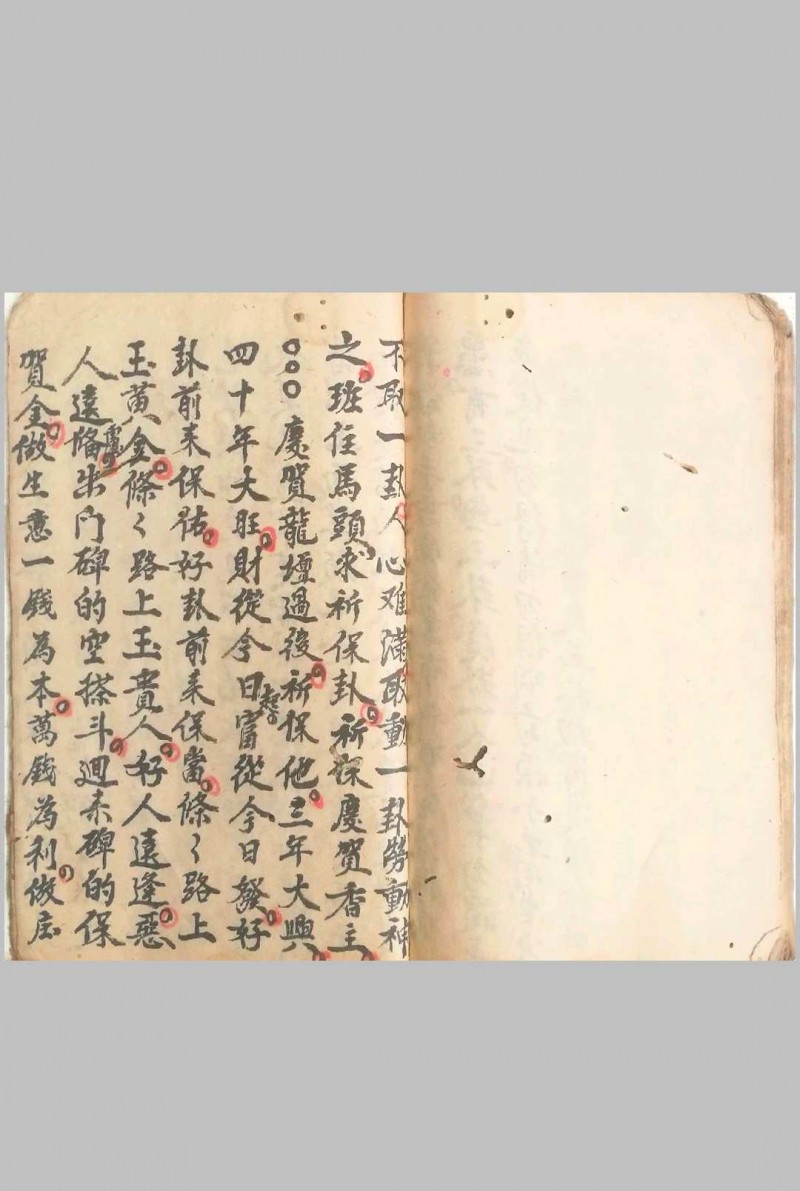 不取一卦人心难滿取動一卦勞動神
之班住馬頭求祈保卦祈保慶賀香主
○○○慶賀龍壇過後祈保他三年大興
四十年大旺財從今日起富從今日發好
卦前来保佑好卦前来保當條〻路上
玉黄金條〻路上玉貴人好人遠逢惡
人遠隔出门碑的空搽斗廻来碑的保
賀金做生意一錢為本萬錢為利做庄